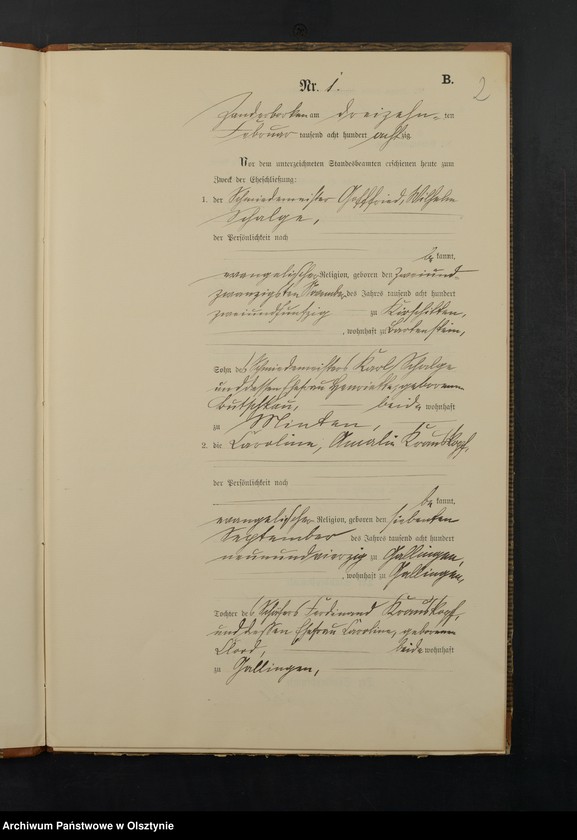 Nr. 1.
B.
2
am dreizehn ten
Februar tausend acht hundert achtzig
Vor dem unterzeichneten Standesbeamten erschienen heute zum
Zweck der Eheschließung:
1. der Schmiedemeister Gottfried, Wilhelm
Schalge,
der Persönlichkeit nach
be kannt,
evangelischer Religion, geboren den zweiund-
zwanzigsten des Jahres tausend acht hundert
zweiundfünfzig zu Kirschitten,
, wohnhaft zu Bartenstein,
Sohn des Schmiedemeisters Karl Schalge
und dessen Ehefrau Henriette, geborenen
beide wohnhaft
zu Minten,
2. die Caroline, Amalie Krauskopf,
der Persönlichkeit nach
be kannt,
evangelischer Religion, geboren den siebenten
September des Jahres tausend acht hundert
neunundvierzig zu Gallingen,
, wohnhaft zu Gallingen,
Tochter des Schäfers Ferdinand Krauskopf,
und dessen Ehefrau Caroline, geborenen
beide wohnhaft
zu Gallingen,
Archiwum Państwowe w Olsztynie